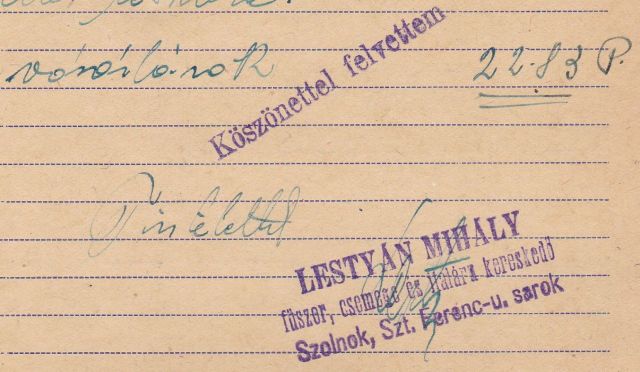 vásárlások 22.83 P.
Köszönettel felvettem
Tisztelettel
LESTYÁN MIHÁLY
füszer, csemege és halárú kereskedő
Szolnok, Szt. Ferenc-u. sarok